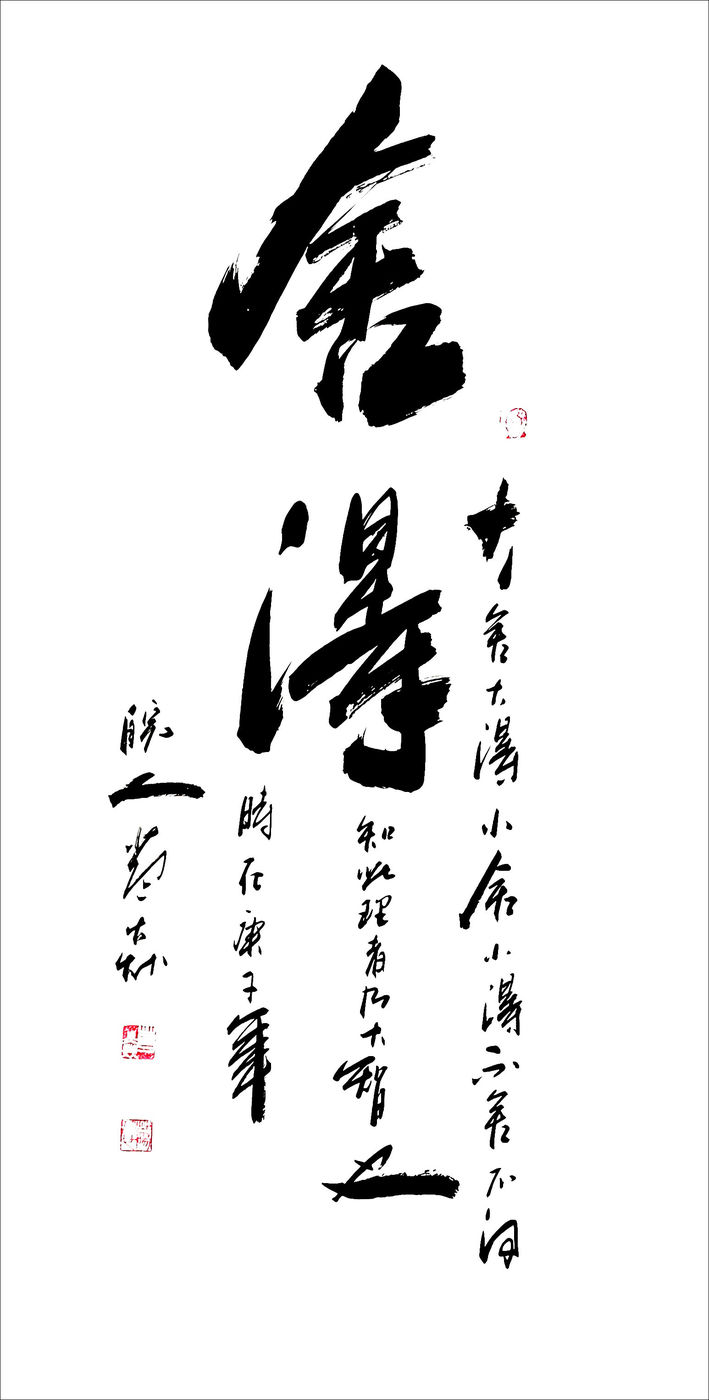 舍得
大舍大得小舍小得不舍不得
知此理者乃大智也
時在庚子年
皖人